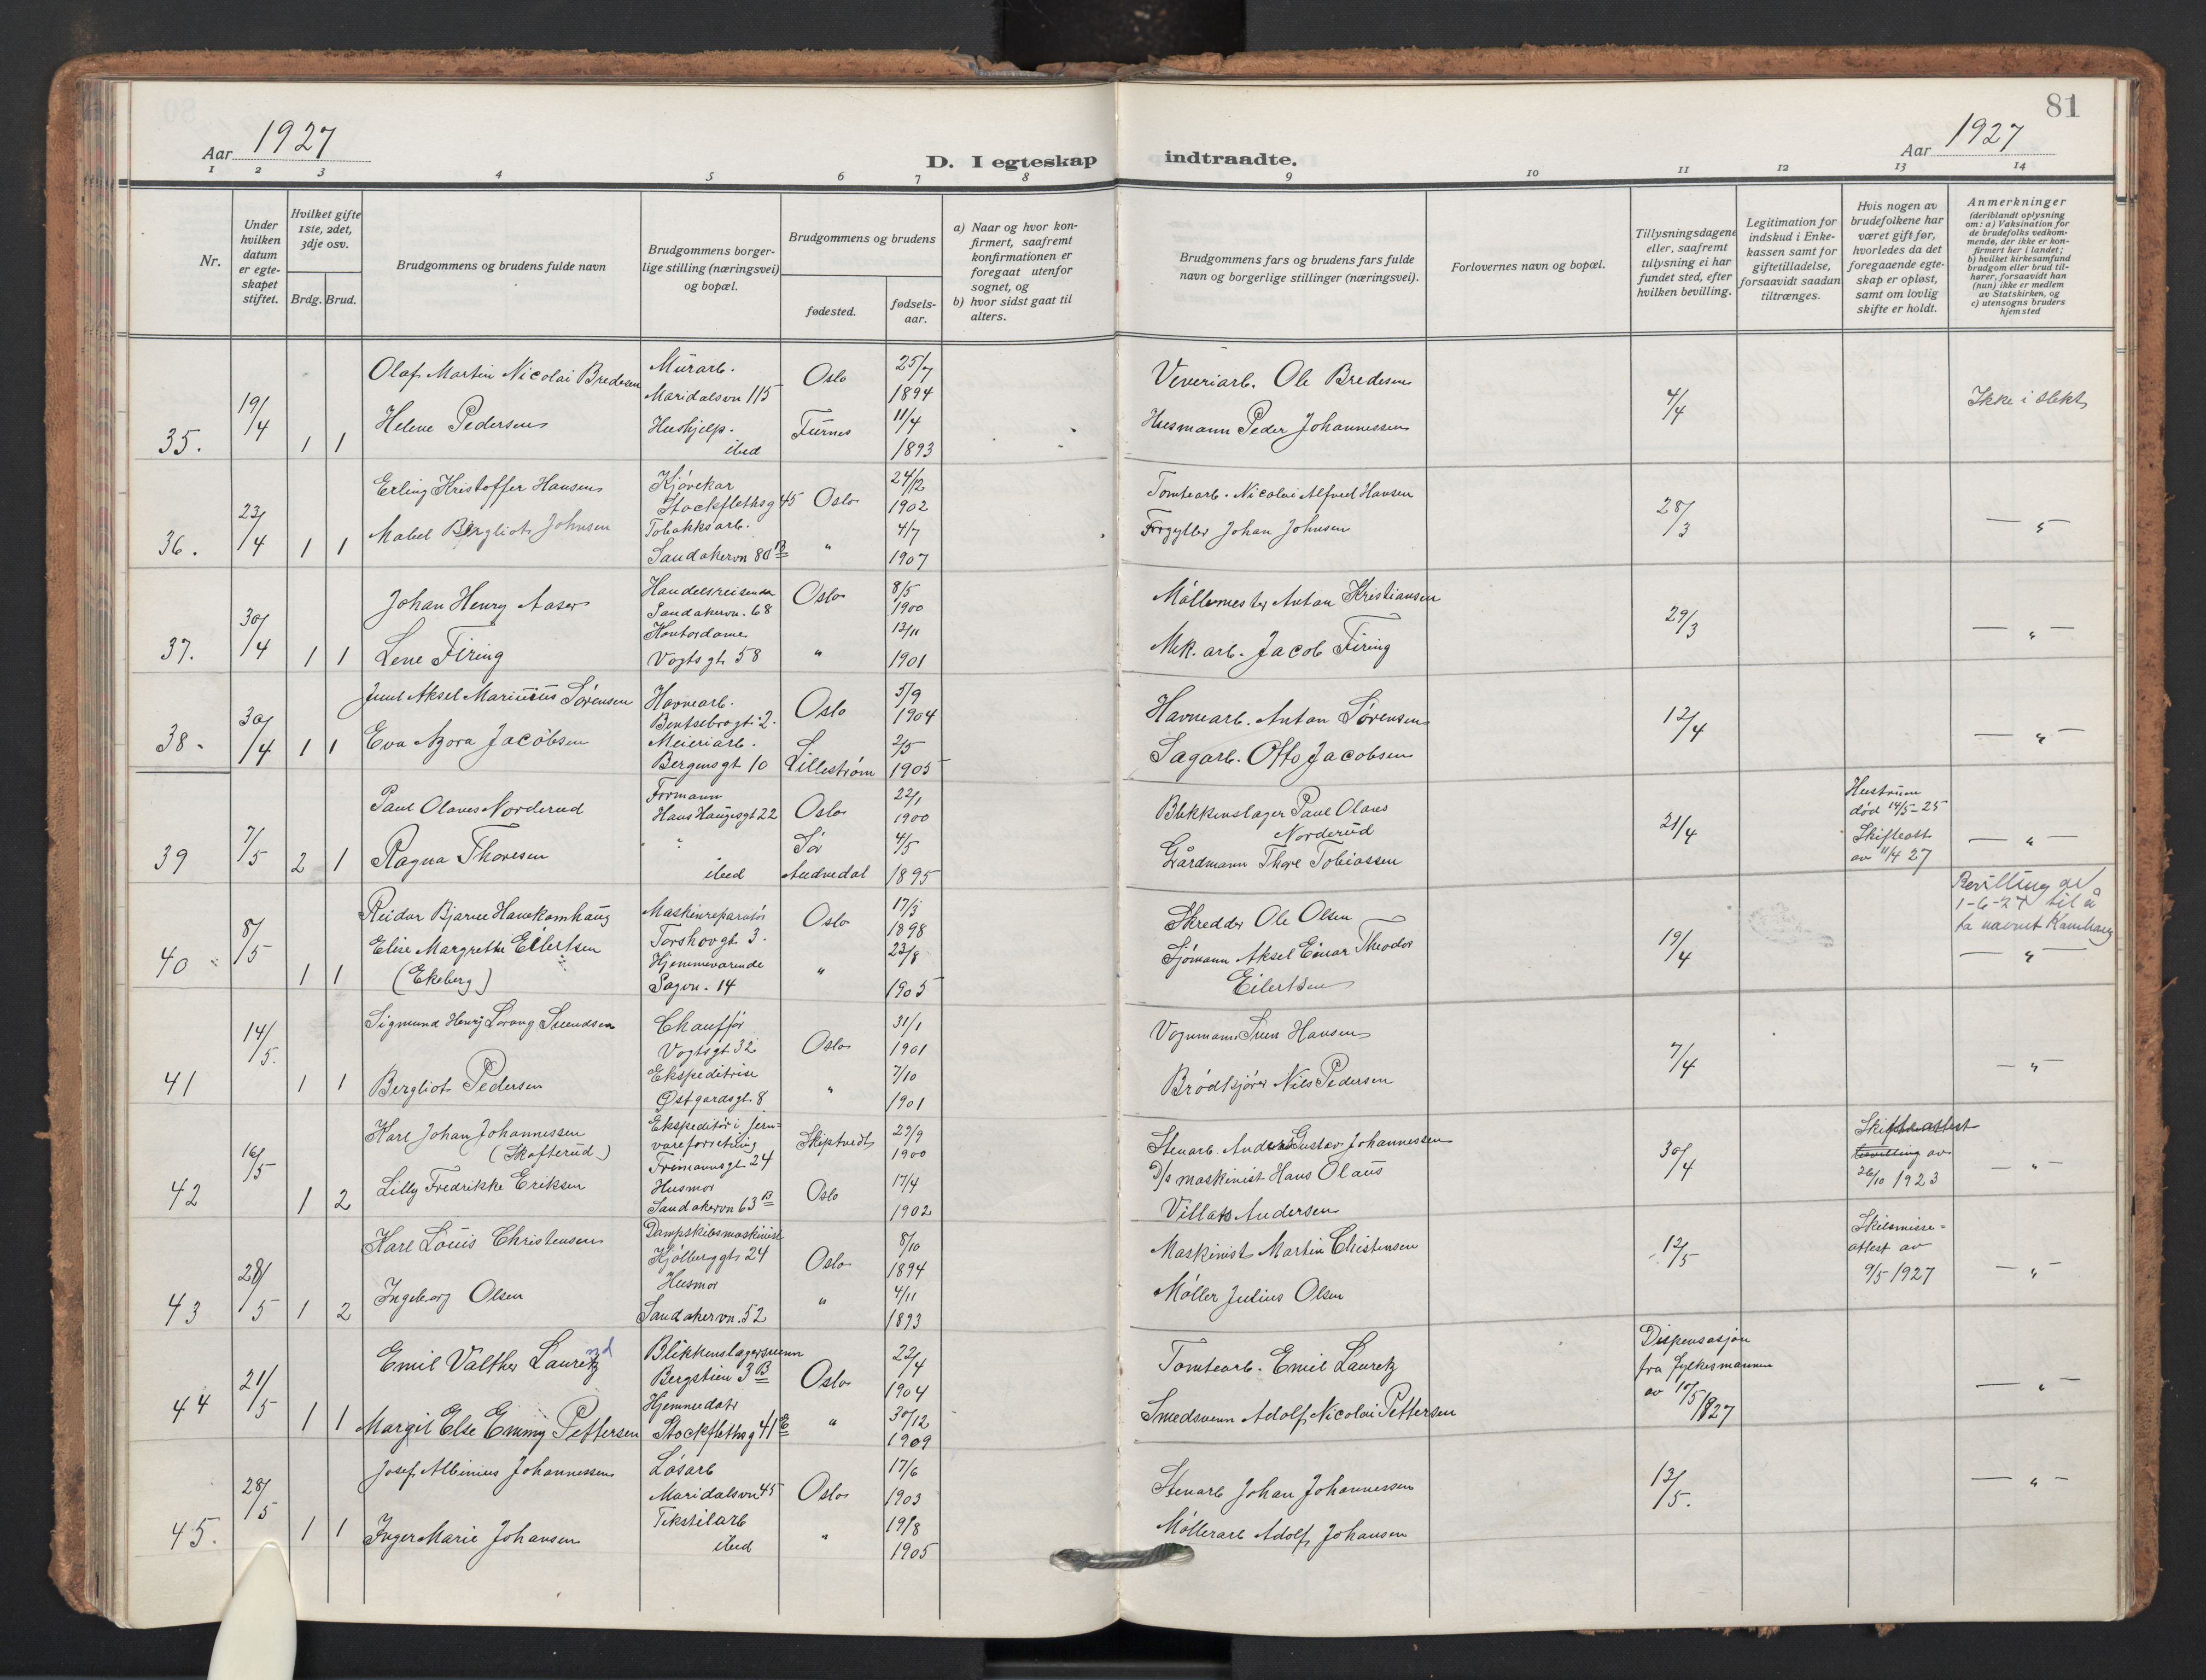 81
Aar 1927
D. I egteskap indtraadte.
Aar 1927
1 2 3 4 5 6 7 8 9 10 11 12 13 14
Nr.
Under hvilken datum er egteskapet stiftet.
Hvilket gifte 1ste, 2det, 3dje osv.
Brdg. Brud.
Brudgommens og brudens fulde navn
Brudgommens borgerlige stilling (næringsvei) og bopæl.
Brudgommens og brudens
fødested.
fødselsaar.
a) Naar og hvor konfirmert, saafremt konfirmationen er foregaat utenfor sognet, og
b) hvor sidst gaat til alters.
Brudgommens fars og brudens fars fulde navn og borgerlige stillinger (næringsvei).
Forlovernes navn og bopæl.
Tillysningsdagene eller, saafremt tillysning ei har fundet sted, efter hvilken bevilling.
Legitimation for indskud i Enkekassen samt for giftetilladelse, forsaavidt saadan tiltrænges.
Hvis nogen av brudefolkene har været gift før, hvorledes da det foregaaende egteskap er opløst, samt om lovlig skifte er holdt.
Anmerkninger
(deriblandt oplysning om: a) Vaksination for de brudefolks vedkommende, der ikke er konfirmert her i landet; b) hvilket kirkesamfund brudgom eller brud tilhører, forsaavidt han (hun) ikke er medlem av Statskirken, og c) utensogns bruders hjemsted
35. 19/4 1 1
Olaf Martin Nicolai Bredesen Murarb. Maridalsvn 115 Oslo 25/7 1894 Veveriarb. Ole Bredesen 4/4 Ikke i slekt
Helene Pedersen Hushjelp. ibid Furnes 11/4 1893 Husmann Peder Johannessen
36. 23/4 1 1
Erling Kristoffer Hansen Kjørekar Stockflethsg 45 Oslo 24/12 1902 Tomtearb. Nicolai Alfred Hansen 28/3 — " —
Mabel Bergliot Johnsen Tobakksarb. Sandakervn 80 B " 4/7 1907 Forgyller Johan Johnsen
37. 30/4 1 1
Johan Henry Aaser Handelsreisende Sandakervn. 68 Oslo 8/5 1900 Møllemester Anton Kristiansen 29/3 — " —
Lene Firing Kontordame Vogts gt. 58 " 13/11 1901 Mek. arb. Jacob Firing
38. 30/4 1 1
Juul Aksel Marinius Sørensen Havnearb. Bentsebrogt. 2. Oslo 5/9 1904 Havnearb. Anton Sørensen 12/4 — " —
Eva Azora Jacobsen Meieriarb. Bergensgt 10 Lillestrøm 2/5 1905 Sagarb. Otto Jacobsen
39 7/5 2 1
Paul Olaves Norderud Formann Hans Haugesgt 22 Oslo 22/1 1900 Blikkenslager Paul Olaves Norderud 21/4 Hustruen død 14/5-25 Skifteatt. av 11/4 27 — " —
Ragna Thoresen " ibid Sør Audnedal 4/5 1895 Gårdmann Thore Tobiassen
40 8/5 1 1
Reidar Bjarne Hauekamhaug Maskinreparatør Torshovgt. 3. Oslo 17/3 1898 Skredder Ole Olsen 19/4 Bevilling av 1-6-27 til å ta navnet Kamhaug — " —
Elise Margrethe Eilertsen (Ekeberg) Hjemmeværende Sagvn. 14 " 23/8 1905 Sjømann Aksel Einar Theodor Eilertsen
41 14/5. 1 1
Sigmund Henry Lorang Svendsen Chauffør Vogtsgt 32 Oslo 31/1 1901 Vognmann Sven Hansen 7/4 — " —
Bergliot Pedersen Ekspeditrise Østgaardsgt. 8 " 7/10 1901 Brødkjører Nils Pedersen
42 16/5 1 2
Karl Johan Johannessen (Skofterud) Ekspeditør i jernvareforretning Frimannsgt. 24 Skiptvedt 29/9 1900 Stenarb. Anders Gustav Johannessen 30/4 Skifteattest bevilling av 26/10 1923 — " —
Lilly Fredrikke Eriksen Husmor Sandakervn 63 B Oslo 17/4 1902 D/s maskinist Hans Olaus Villats Andersen
43 28/5 1 2
Karl Louis Christensen Dampskibsmaskinist Kjølberggt. 24 Oslo 8/10 1894 Maskinist Martin Christensen 12/5 Skilsmisseattest av 9/5 1927 — " —
Ingeborg Olsen Husmor Sandakervn. 52 " 4/11 1893 Møller Julius Olsen
44 21/5 1 1
Emil Valther Lauretz nd Blikkenslagersvenn Bergstien 3 B Oslo 22/4 1904 Tomtearb. Emil Lauretz Dispensasjon fra fylkesmannen av 10/5 1927 — " —
Margit Else Emmy Pettersen Hjemmedatr Stockflethsg 41 E " 30/12 1909 Smedsvenn Adolf Nicolai Pettersen
45. 28/5 1 1
Josef Albinius Johannessen Løsarb Maridalsvn 45 Oslo 17/6 1903 Stenarb Johan Johannessen 13/5. — " —
Inger Marie Johansen Tekstilarb ibid " 19/8 1905 Møllerarb Adolf Johansen